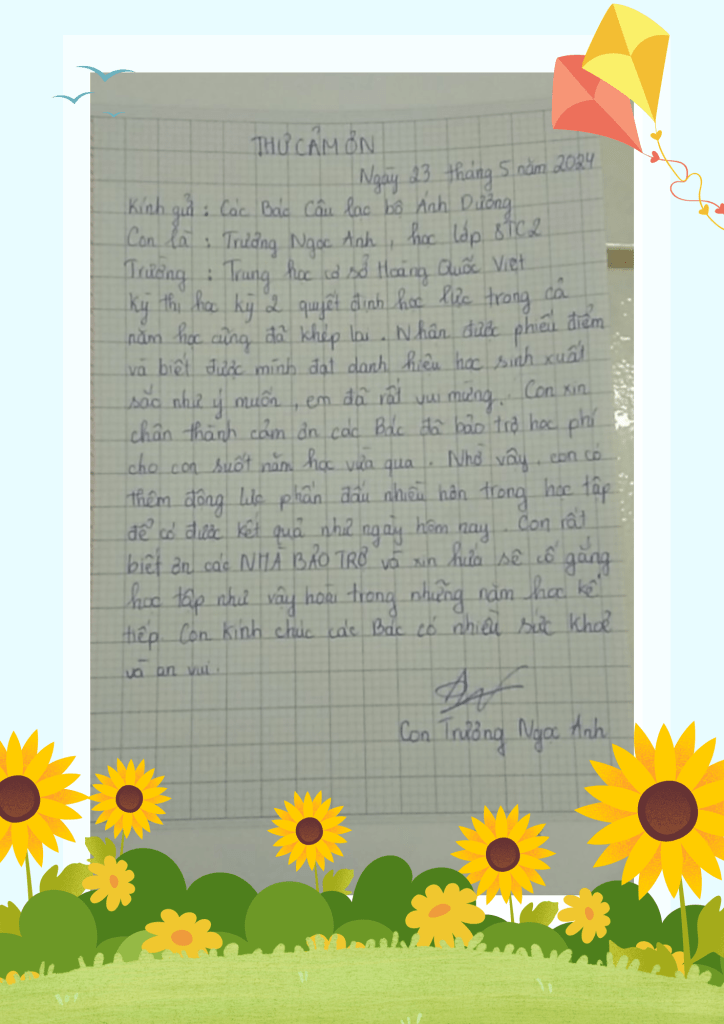 THƯ CẢM ƠN
Ngày 23 tháng 5 năm 2024
Kính gửi : Các Bác Câu lạc bộ Ánh Dương
Con là : Trương Ngọc Anh , học lớp 8TC2
Trường : Trung học cơ sở Hoàng Quốc Việt
Kỳ thi học kỳ 2 quyết định học lực trong cả
năm học cũng đã khép lại . Nhận được phiếu điểm
và biết được mình đạt danh hiệu học sinh xuất
sắc như ý muốn , em đã rất vui mừng . Con xin
chân thành cảm ơn các Bác đã bảo trợ học phí
cho con suốt năm học vừa qua . Nhờ vậy , con có
thêm động lực phấn đấu nhiều hơn trong học tập
để có được kết quả như ngày hôm nay . Con rất
biết ơn các NHÀ BẢO TRỢ và xin hứa sẽ cố gắng
học tập như vậy hoài trong những năm học kế
tiếp Con kính chúc các Bác có nhiều sức khoẻ
và an vui .
Con Trương Ngọc Anh